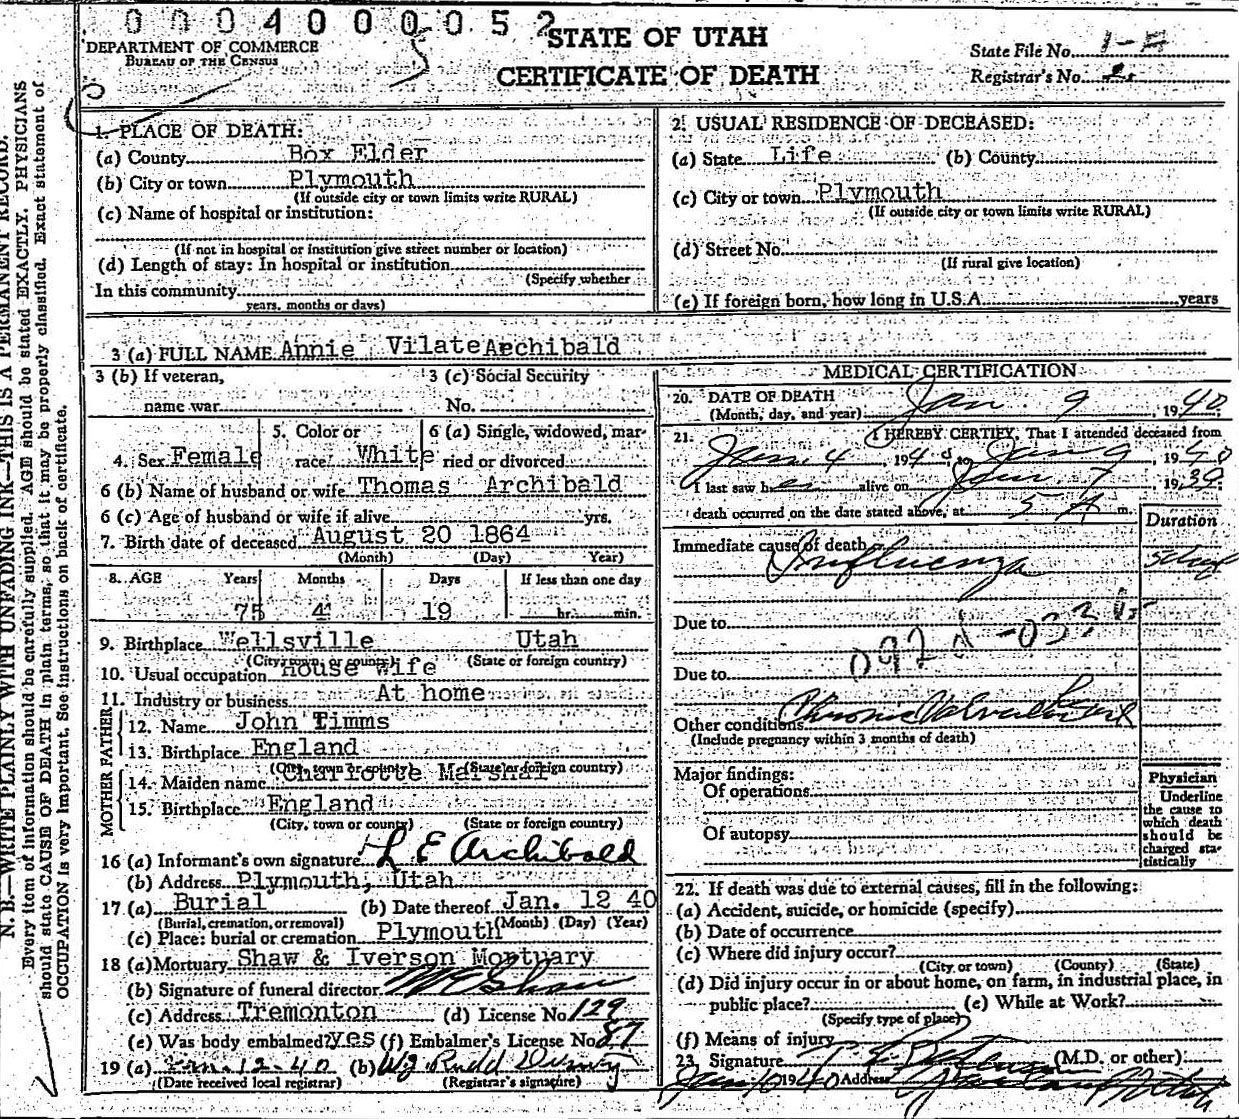 0004000052
DEPARTMENT OF COMMERCE
BUREAU OF THE CENSUS
STATE OF UTAH
CERTIFICATE OF DEATH
State File No.
Registrar's No.
N. B.—WRITE PLAINLY WITH UNFADING INK—THIS IS A PERMANENT RECORD.
Every item of information should be carefully supplied. AGE should be stated EXACTLY. PHYSICIANS
should state CAUSE OF DEATH in plain terms, so that it may be properly classified. Exact statement of
OCCUPATION is very important. See instructions on back of certificate.
1. PLACE OF DEATH:
(a) County Box Elder
(b) City or town Plymouth
(If outside city or town limits write RURAL)
(c) Name of hospital or institution:
(If not in hospital or institution give street number or location)
(d) Length of stay: In hospital or institution
(Specify whether
In this community
years, months or days)
2. USUAL RESIDENCE OF DECEASED:
(a) State Life (b) County
(c) City or town Plymouth
(If outside city or town limits write RURAL)
(d) Street No.
(If rural give location)
(e) If foreign born, how long in U.S.A. years
3 (a) FULL NAME Annie Vilate Archibald
3 (b) If veteran, 3 (c) Social Security
name war No.
4. Sex Female 5. Color or race White 6 (a) Single, widowed, married or divorced
6 (b) Name of husband or wife Thomas Archibald
6 (c) Age of husband or wife if alive yrs.
7. Birth date of deceased August 20 1864
(Month) (Day) Year)
8. AGE Years Months Days If less than one day
75 4 19 hr. min.
9. Birthplace Wellsville Utah
(City, town, or county) (State or foreign country)
10. Usual occupation House wife
11. Industry or business At home
FATHER
12. Name John Timms
13. Birthplace England
(City, town or county) (State or foreign country)
MOTHER
14. Maiden name Charlotte Marshal
15. Birthplace England
(City, town or county) (State or foreign country)
16 (a) Informant's own signature L E Archibald
(b) Address Plymouth, Utah
17 (a) Burial (b) Date thereof Jan. 12 40
(Burial, cremation, or removal) (Month) (Day) (Year)
(c) Place: burial or cremation Plymouth
18 (a) Mortuary Shaw & Iverson Mortuary
(b) Signature of funeral director Shaw
(c) Address Tremonton (d) License No. 129
(e) Was body embalmed? yes (f) Embalmer's License No. 87
19 (a) Jan. 12-40 (b) Rudd
(Date received local registrar) (Registrar's signature)
MEDICAL CERTIFICATION
20. DATE OF DEATH
(Month, day, and year) Jan. 9, 1940
21. I HEREBY CERTIFY, That I attended deceased from
Jan 4, 1940 to Jan 9, 1940
I last saw her alive on Jan 7, 1939
death occurred on the date stated above, at 5 A m.
Duration
Immediate cause of death
Influenza
Due to 092
Due to
Other conditions Chronic
(Include pregnancy within 3 months of death)
Major findings:
Of operations
Of autopsy
Physician
Underline
the cause to
which death
should be
charged sta-
tistically
22. If death was due to external causes, fill in the following:
(a) Accident, suicide, or homicide (specify)
(b) Date of occurrence
(c) Where did injury occur?
(City or town) (County) (State)
(d) Did injury occur in or about home, on farm, in industrial place, in
public place? (e) While at Work?
(Specify type of place)
(f) Means of injury
23. Signature (M.D. or other)
1940 Address